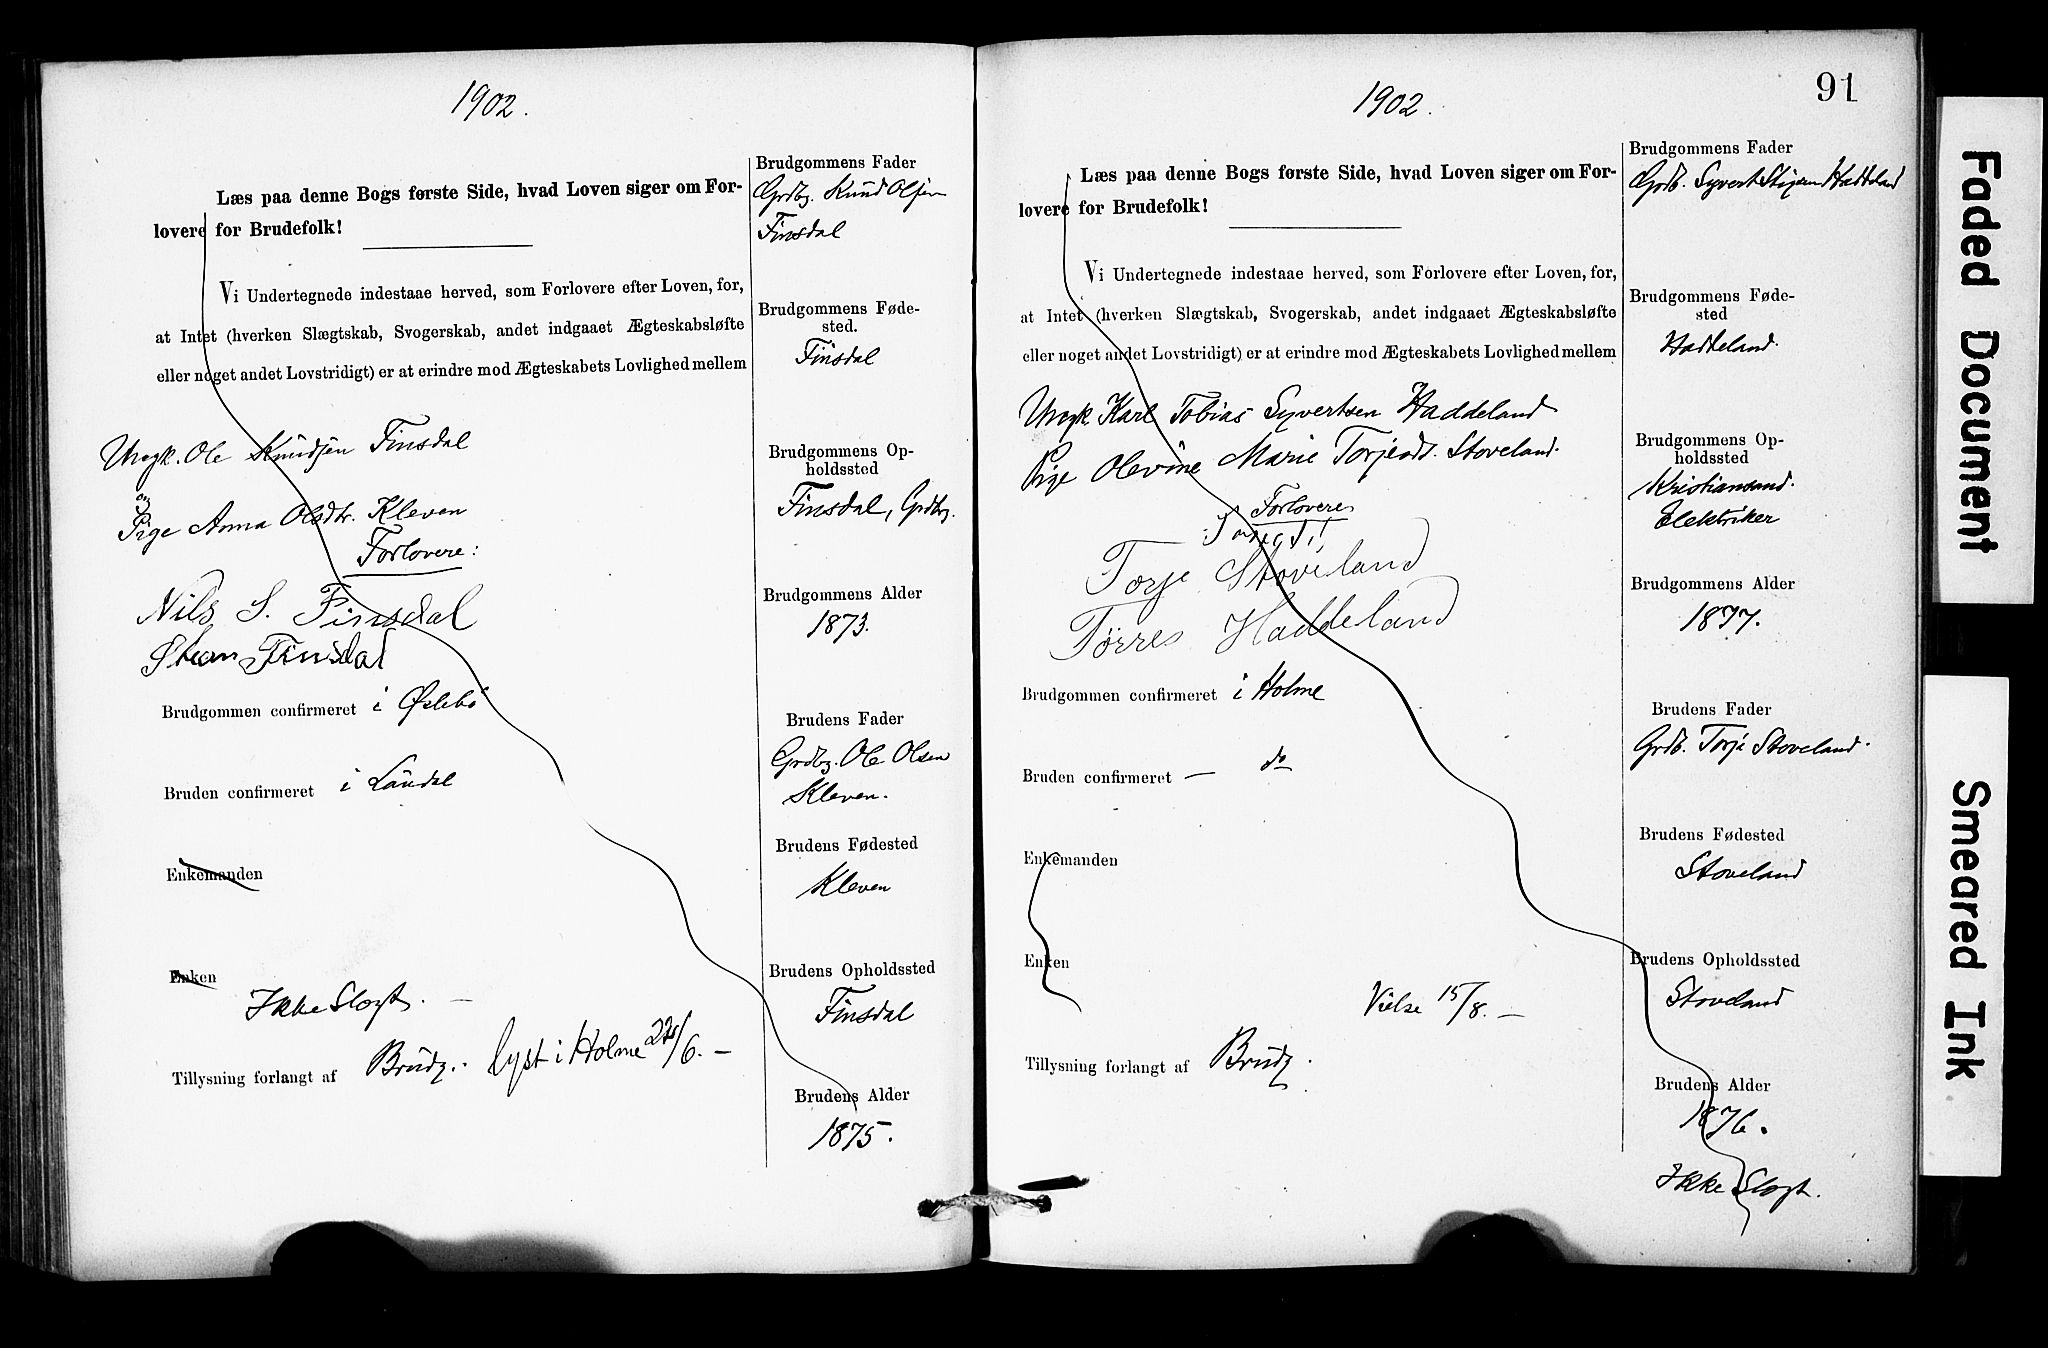 1902.
Læs paa denne Bogs første Side, hvad Loven siger om For-
lovere for Brudefolk!
Vi Undertegnede indestaae herved, som Forlovere efter Loven, for,
at Intet (hverken Slægtskab, Svogerskab, andet indgaaet Ægteskabsløfte
eller noget andet Lovstridigt) er at erindre mod Ægteskabets Lovlighed mellem
Ungk. Ole Knudsen Finsdal
og
Pige Anna Olsdtr. Kleven
Forlovere:
Nils S. Finsdal
Finsdal
Brudgommen confirmeret i Øslebø
Bruden confirmeret i Laudal
Enkemanden
Enken
Ikke Slægt. —
Tillysning forlangt af Brudg. lyst i Holme 22/6. —
Brudgommens Fader
Grdbg. Knud Olsen
Finsdal
Brudgommens Føde-
sted.
Finsdal
Brudgommens Op-
holdssted
Finsdal, Grdbg.
Brudgommens Alder
1873.
Brudens Fader
Grdbg. Ole Olsen
Kleven.
Brudens Fødested
Kleven
Brudens Opholdssted
Finsdal
Brudens Alder
1875.
1902.
91
Læs paa denne Bogs første Side, hvad Loven siger om For-
lovere for Brudefolk!
Vi Undertegnede indestaae herved, som Forlovere efter Loven, for,
at Intet (hverken Slægtskab, Svogerskab, andet indgaaet Ægteskabsløfte
eller noget andet Lovstridigt) er at erindre mod Ægteskabets Lovlighed mellem
Ungk. Karl Tobias Syvertsen Haddeland
Pige Olevine Marie Torjesd. Stoveland.
Forlovere
Torje Stoveland
Tørres Haddeland
Brudgommen confirmeret i Holme
Bruden confirmeret — do
Enkemanden
Enken
Vielse 15/8. —
Tillysning forlangt af Brudg.
Brudgommens Fader
Grdb. Syvert Haddeland
Brudgommens Føde-
sted
Haddeland.
Brudgommens Op-
holdssted
Kristiansand.
Elektriker
Brudgommens Alder
1877.
Brudens Fader
Grdb. Torje Stoveland.
Brudens Fødested
Stoveland
Brudens Opholdssted
Stoveland
Brudens Alder
1876.
Ikke Slægt.
Faded Document
Smeared Ink